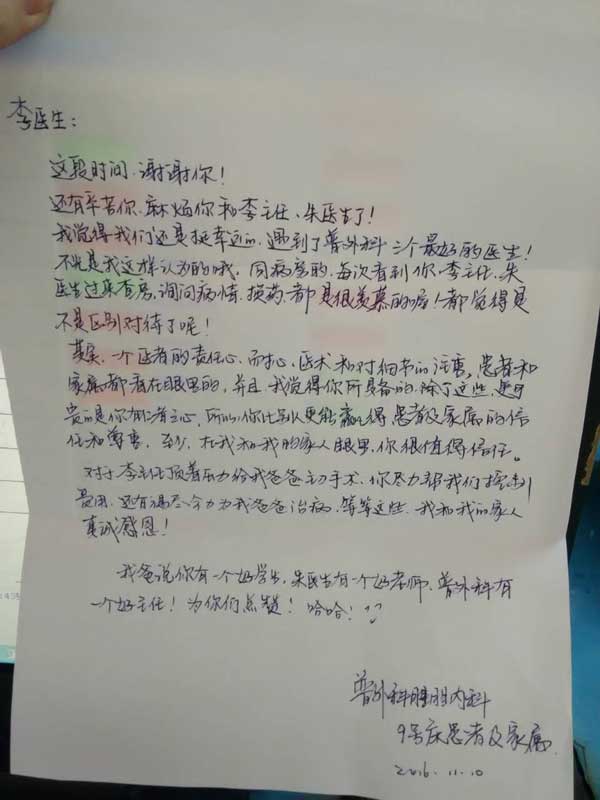 李医生：
这段时间，谢谢你！
还有辛苦你、麻烦你和李主任、朱医生了！
我觉得我们还是挺幸运的，遇到了普外科三个最好的医生！
不光是我这样认为的哦，同病房的，每次看到你、李主任、朱
医生过来查房、询问病情、换药，都是很羡慕的喔！都觉得是
不是区别对待了呢！
其实，一个医者的责任心、耐心、医术和对细节的注重，患者和
家属都看在眼里的，并且，我觉得你所具备的，除了这些，更可
贵的是你有仁者之心，所以，你比别人更能赢得患者及家属的信
任和尊重，至少，在我和我的家人眼里，你很值得信任。
对于李主任顶着压力给我爸爸主刀手术，你尽力帮我们控制
费用，还有竭尽全力为我爸爸治病，等等这些，我和我的家人
真诚感恩！
我爸说你有一个好学生，朱医生有一个好老师，普外科有
一个好主任！为你们点赞！哈哈！
普外科肝胆内科
9号床患者及家属
2016.11.10